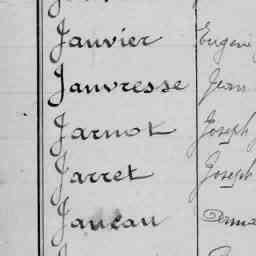 Janvier Eugène
Janvresse Jean
Jarnot Joseph
Jarret Joseph
Jaucau